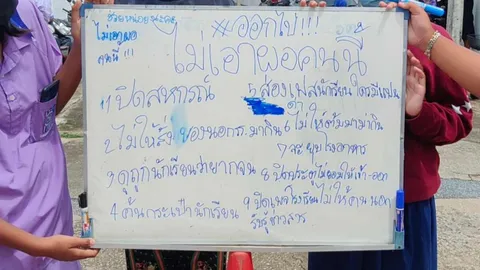 #ออกไป!!!
ไม่เอาผอ
คนนี้ !!!
ไม่เอาผอคนนี้
1 ปิดสหกรณ์
5 ส่องเฟสนักเรียนใครมีแฟนด่า
2 ไม่ให้สั่งของนอกรร.มากิน
6 ไม่ให้ต้มมาม่ากิน
7 จะยุบโรงอาหาร
3 ดูถูกนักเรียนว่ายากจน
8 ปิดประตูไม่ยอมให้เข้า-ออก
4 ค้นกระเป๋านักเรียน
9 ปิดเพจโรงเรียนไม่ให้คนนอก
รับรู้ข่าวสาร